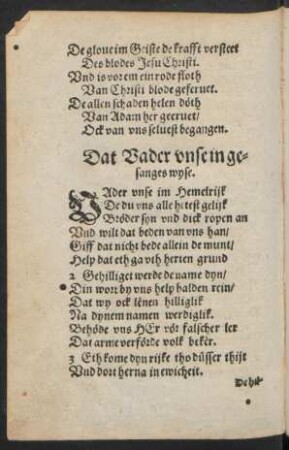 De gloue im Geiste de krafft versteet
Des blodes Jesu Christi.
Vnd is vor em ein rode floth
Van Christi blode geferuet.
De allen schaden helen dóth
Van Adam her geeruet/
Ock van vns seluest begangen.
Dat Vader vnse in ge-
sanges wyse.
VAder vnse im Hemelrijk
De du vns alle hitest gelijk
Bróder syn vnd dick ropen an
Vnd wilt dat beden van vns han/
Giff dat nicht bede allein de munt/
Help dat eth ga vth herten grund
2 Gehilliget werde de name dyn/
Din wort by vns help holden rein/
Dat wy ock léuen hilliglik
Na dynem namen werdiglik.
Behóde vns HErr vór falscher ler
Dat arme verfórde volk bekér.
3 Eth kome dyn rijke tho dússer thijt
Vnd dort herna in ewicheit.
De hil-